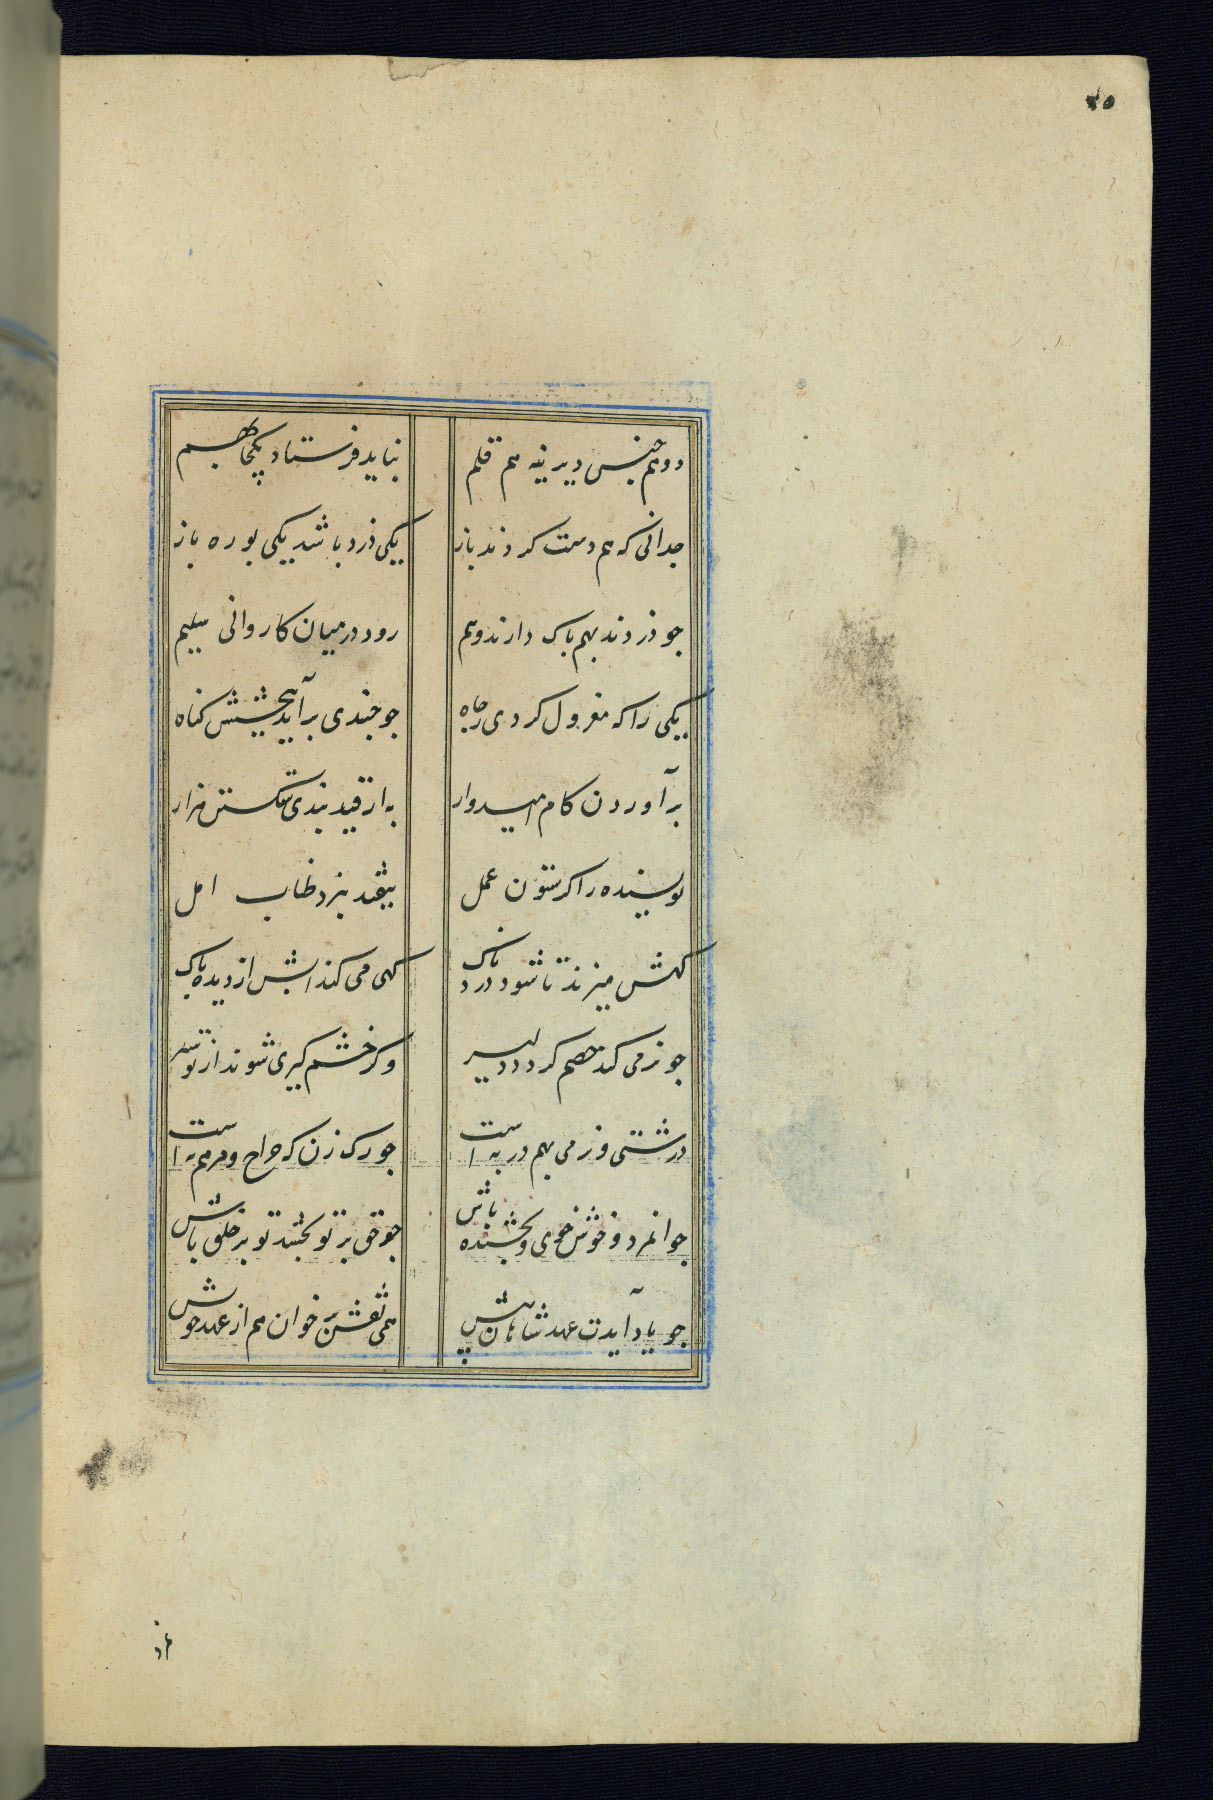 ۳۵
دو هم جنس دیرینه هم قلم
نباید فرستاد یکجا بهم
جدانی که هم دست کردند باز
یکی دزد باشد یکی بوره باز
جو دزدند بهم باک دارند و بیم
رود در میان کاروانی سلیم
یکی را که معزول کردی ز جاه
جو جندی بر آید ببخشش کناه
بر آوردن کام امیدوار
به از قید بندی شکستن هزار
نویسنده را کر ستون عمل
بیفتد نبرد طناب امل
کهش میزند تا شود دردناک
کهی می کند آبش از دیده پاک
جو نرمی کند خصم کردد دلیر
و کر خشم کیری شوند از تو سیر
درشتی و نرمی بهم در به است
جو رک زن که جراح و مرهم نه است
جوانمرد و خوش خوی و بخشنده باش
جو حق بر تو بخشد تو بر خلق باش
جو یاد آیدت عهد شاهان پیش
همی نقش بر خوان هم از عهد خویش